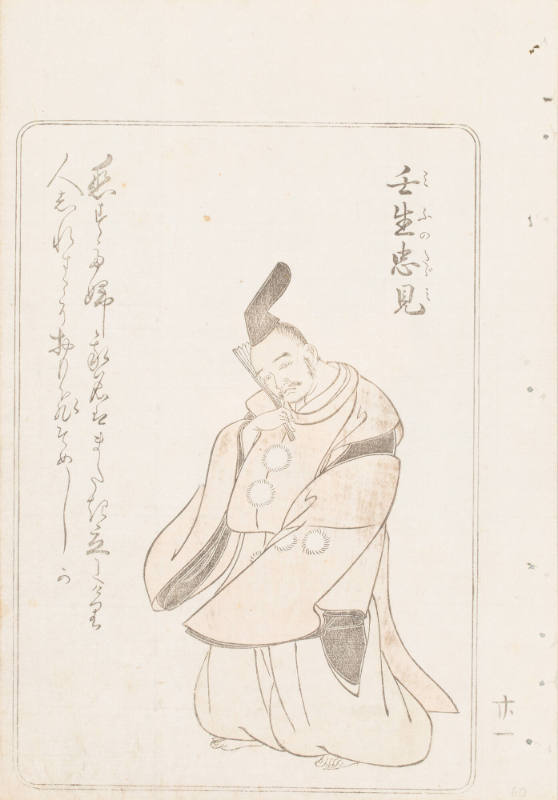 壬生忠見
みふのたゞみ
恋すてふ我名はまたき立にけり
人しれすこそおもひそめしか
廿一
60